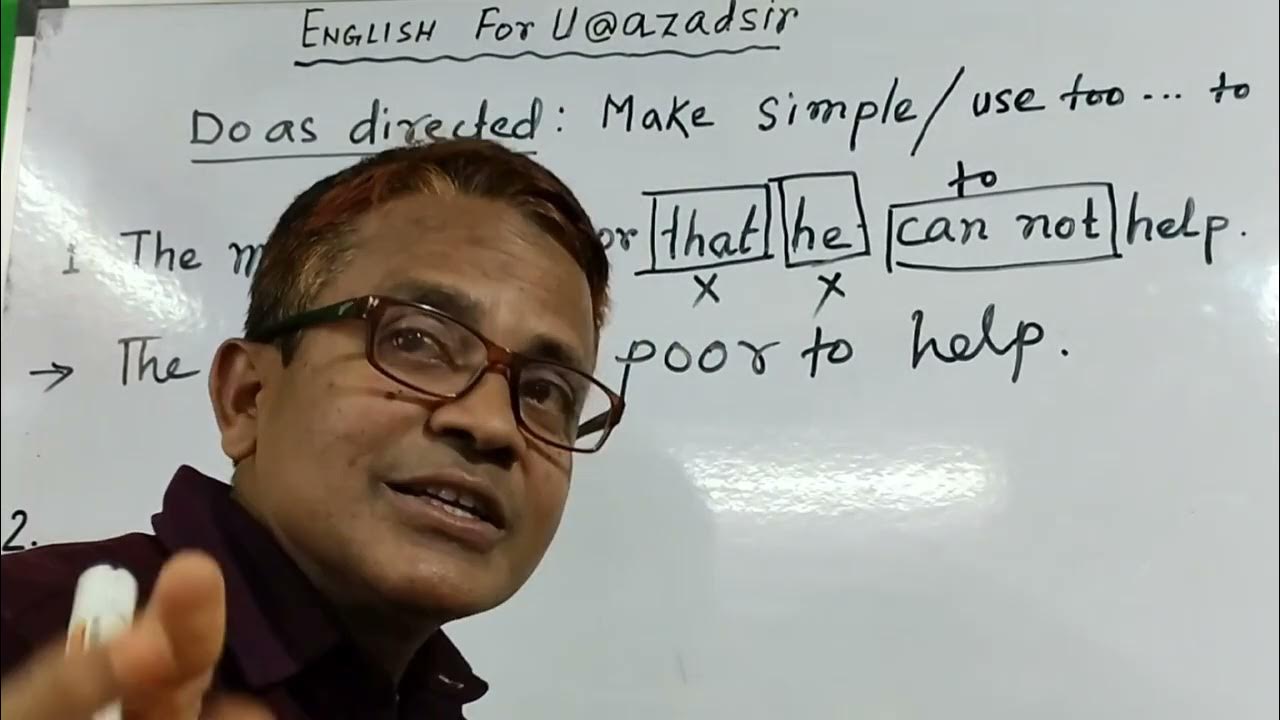 ENGLISH For U @azadsir
Do as directed: Make simple/use too... to
to
1 The or that he can not help.
x x
→ The poor to help.
2.